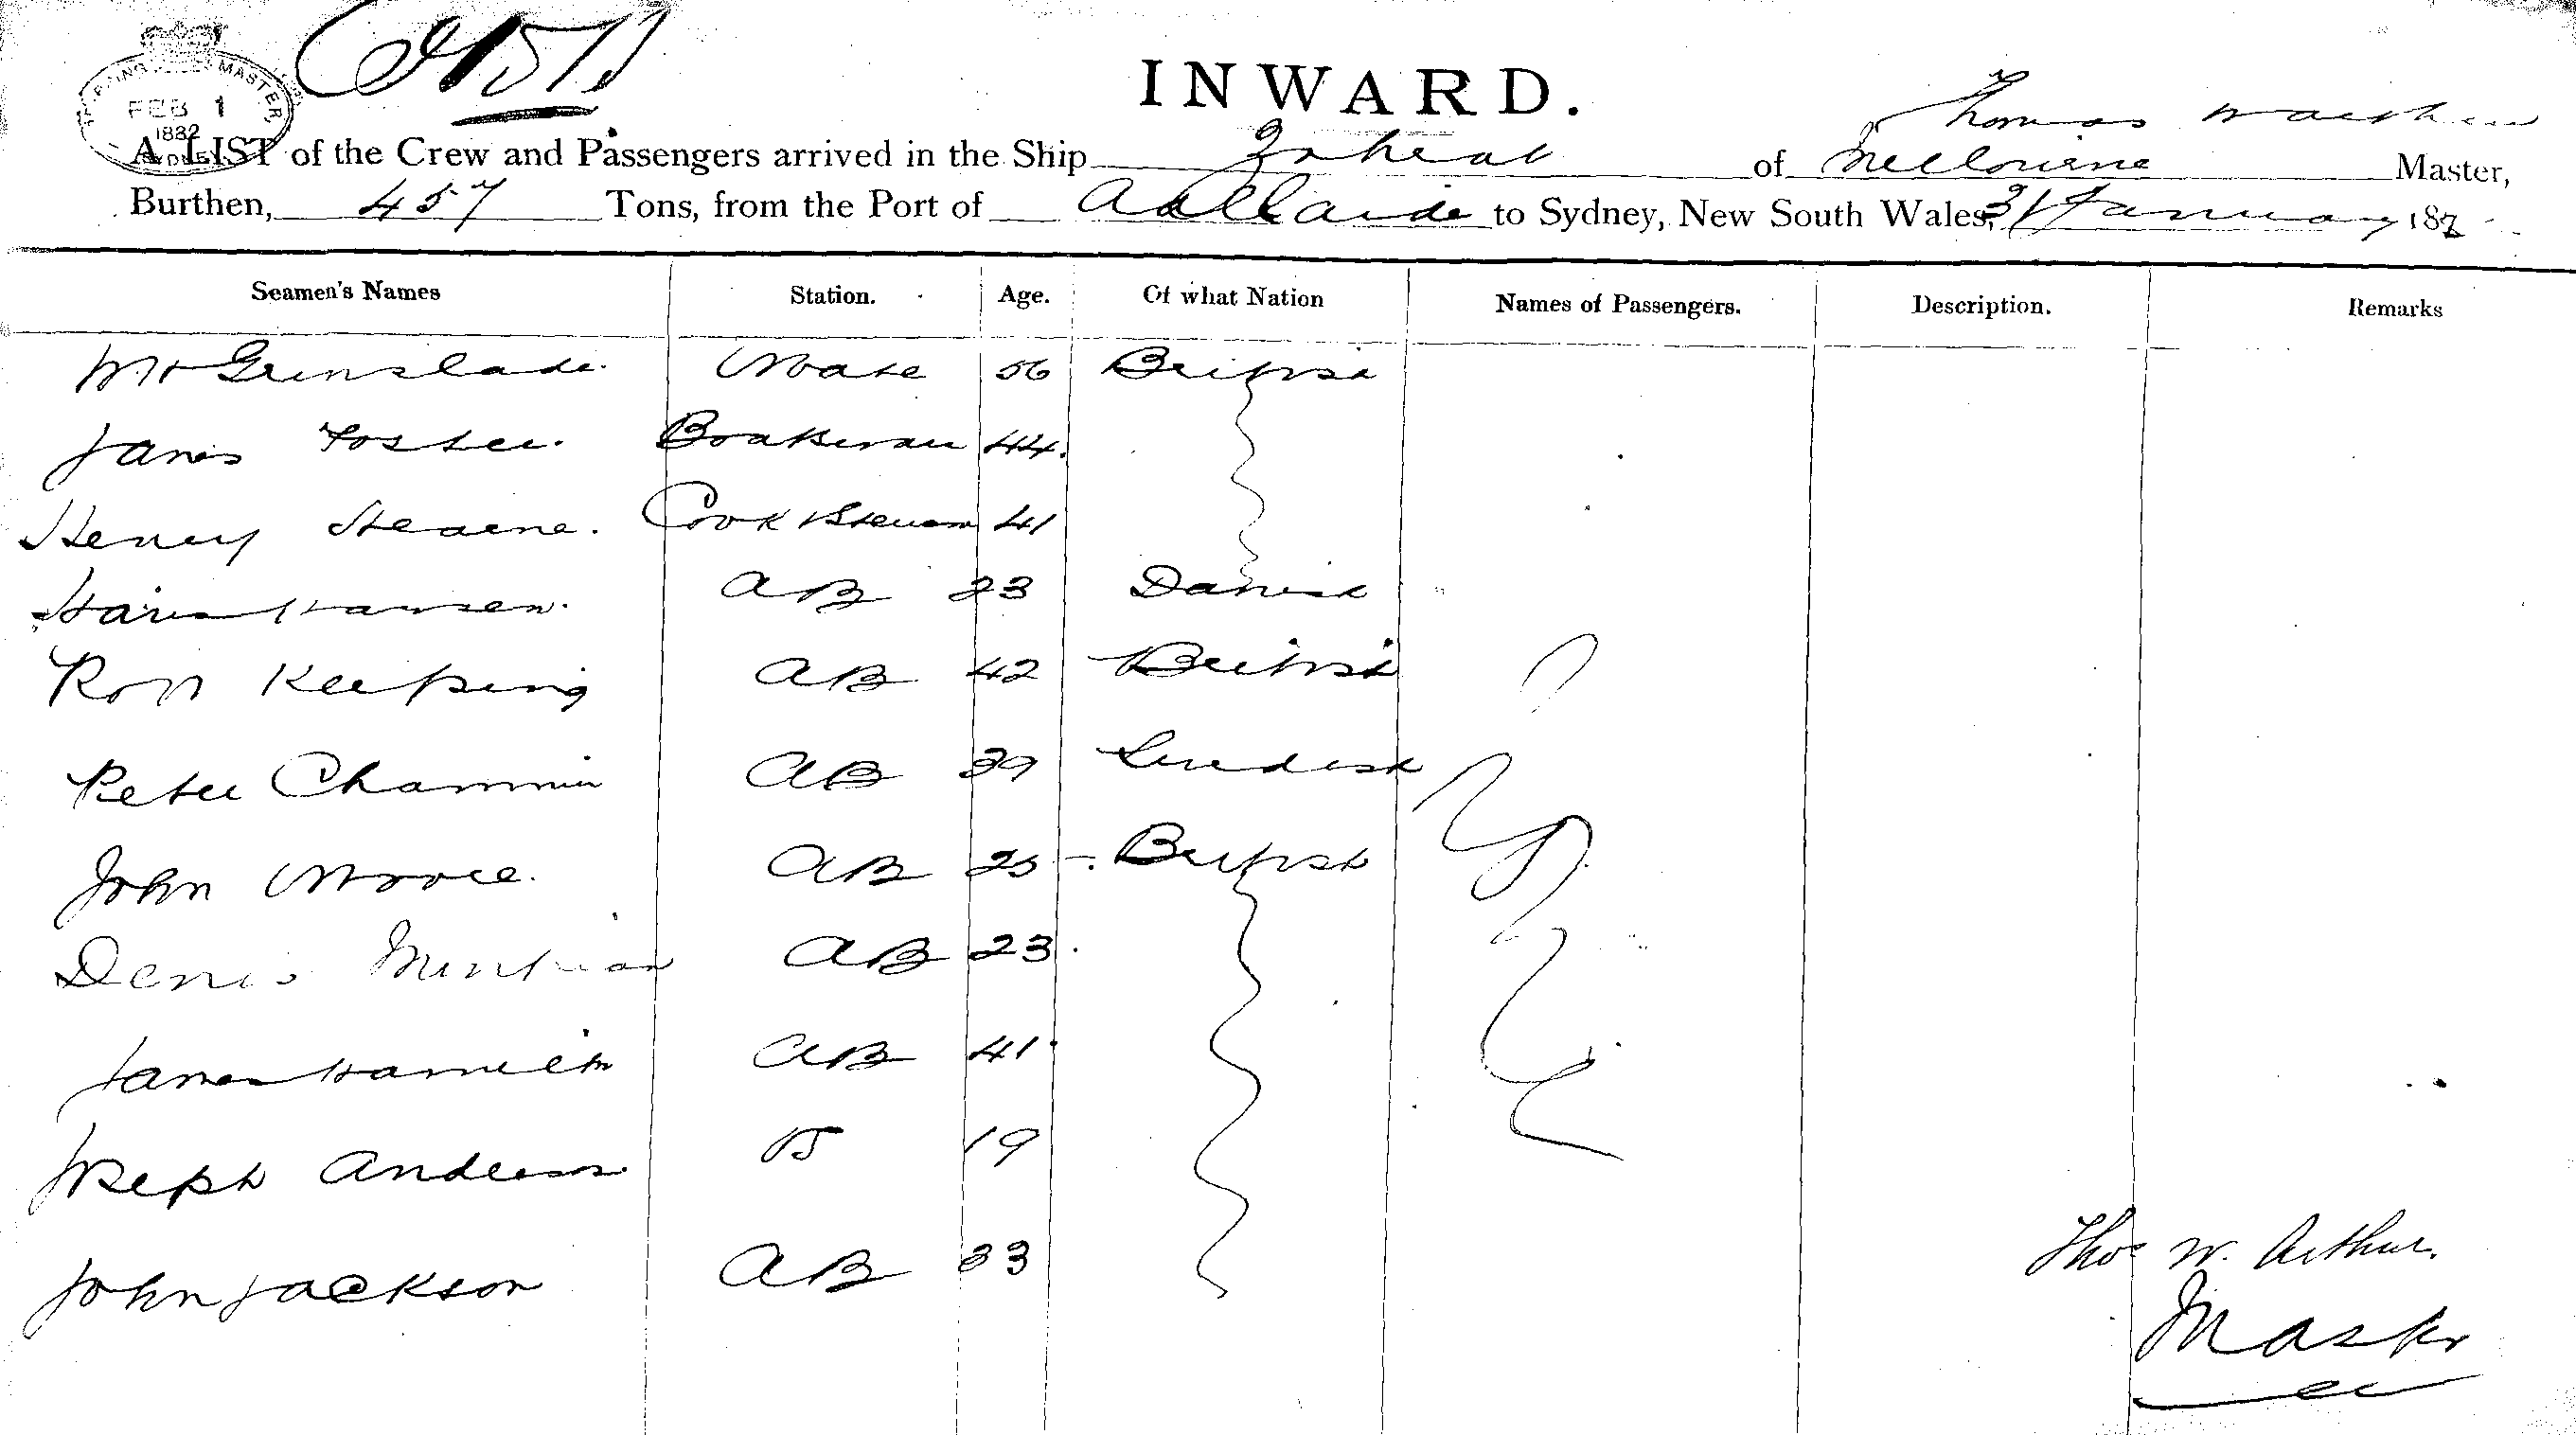 INWARD.
FEB 1
1882
Thomas W Arthur
A LIST of the Crew and Passengers arrived in the Ship Zoheab of Melbourne Master,
Burthen, 457 Tons, from the Port of Adelaide to Sydney, New South Wales, 31 January 1882
Seamen's Names Station. Age. Of what Nation Names of Passengers. Description. Remarks
Wm Grinslade. Mate 56 British
James Foster. Boatswain 44.
Henry Hearne. Cook & Steward 41
Hans Hansen. AB 23 Danish
Robt Keeping AB 42 British
Peter AB 39 Swedish
John Moore. AB 25 British
Denis AB 23
James Hamilton AB 41
Joseph Anderson OS 19
John Jackson AB 33
Thos W. Arthur.
Master